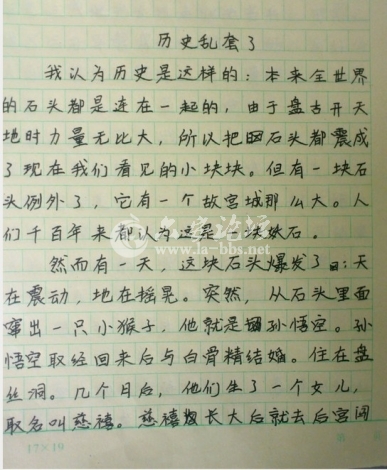 历史乱套了
我认为历史是这样的：本来全世界
的石头都是连在一起的，由于盘古开天
地时力量无比大，所以把石头都震成
了现在我们看见的小块块。但有一块石
头例外了，它有一个故宫城那么大。人
们千百年来都认为这是一块妖石。
www.la-bbs.net
然而有一天，这块石头爆发了：天
在震动，地在摇晃。突然，从石头里面
窜出一只小猴子，他就是孙悟空。孙
悟空取经回来后与白骨精结婚。住在盘
丝洞。几个月后，他们生了一个女儿，
取名叫慈禧。慈禧长大后就去后宫闹
17×19